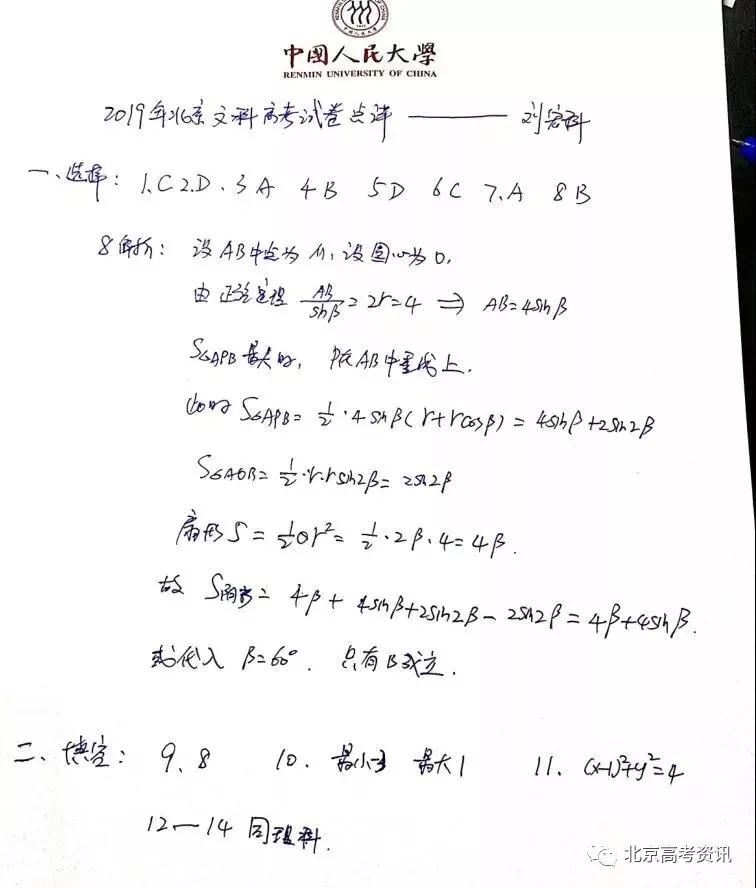 中國人民大學
RENMIN UNIVERSITY OF CHINA
2019年北京文科高考试卷点评 ——— 刘容科
一、选择: 1.C 2.D. 3 A 4 B 5 D 6 C 7.A 8 B
8解析: 设AB中点为M,设圆心为O,
由正弦定理 AB/sinβ = 2r = 4 ⇒ AB=4sinβ
S△APB最大时, P在AB中垂线上.
此时 S△APB = 1/2 · 4 sinβ(r+rcosβ) = 4sinβ+2sin2β
S△AOB = 1/2 · r · r sin2β = 2sin2β
扇形S = 1/2 θr² = 1/2 · 2β · 4 = 4β.
故 S阴影 = 4β + 4sinβ+2sin2β − 2sin2β = 4β+4sinβ.
或代入 β=60°. 只有B成立.
二、填空: 9、8 10. 最小-3 最大1 11、(x-1)²+y²=4
12—14 同理科.
北京高考资讯